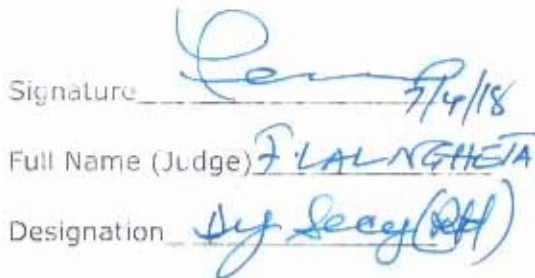 Signature 7/4/18
Full Name (Judge) F LALNGHETA
Designation Dy Secy (Retd)